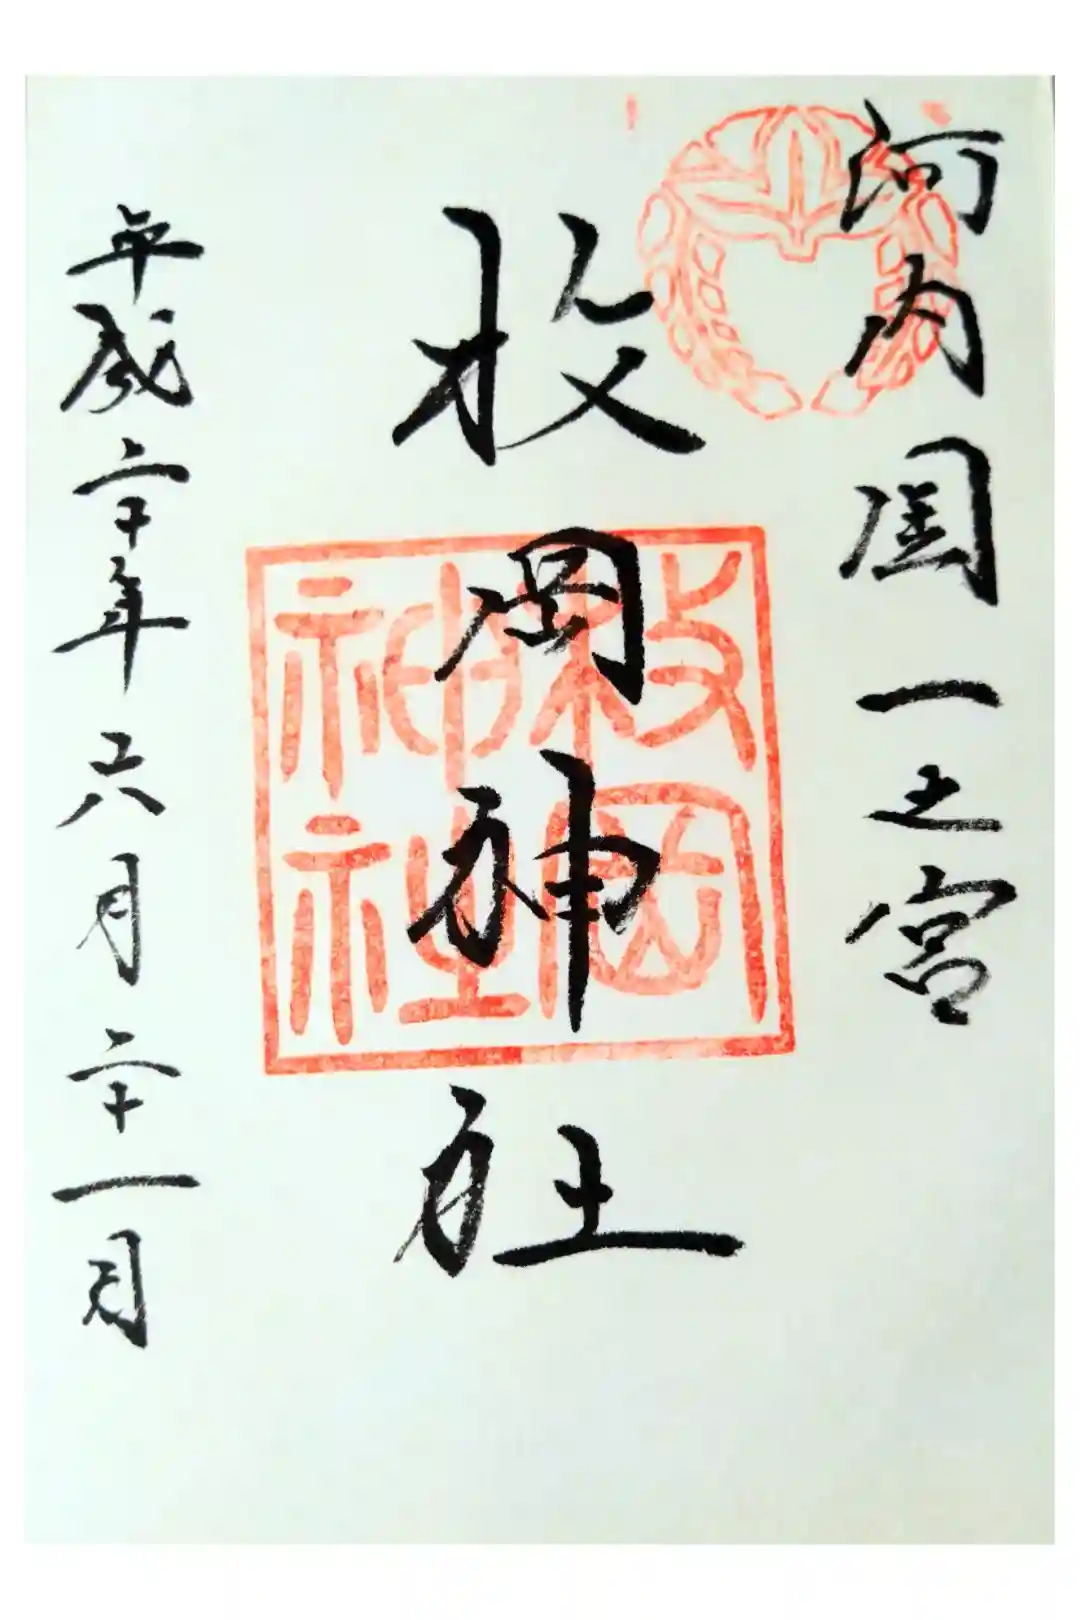 河内国一之宮
枚岡神社
枚岡
神社
平成二十年六月二十一日